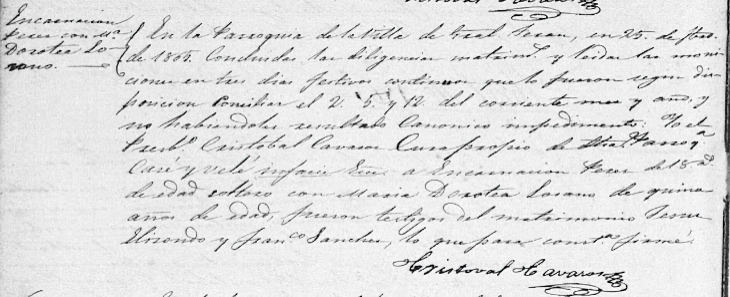 Encarnacion
Peres con Ma.
Dorotea Lo-
sano.
En la Parroquia de la Villa de Gral. Teran, en 25. de
de 1865. Concluidas las diligencias matrims. y leidas las moni-
ciones en tres dias festivos continuos, que lo fueron segun dis-
posicion Conciliar el 2. 5. y 12. del corriente mes y año, y
no habiendoles resultado Canonico impedimento: Yo el
Presbo. Cristobal Cavazos Cura propio de Parroqa.
Casé y velé infacie Ecc. a Encarnacion Peres de 18 as.
de edad soltero con Maria Dorotea Losano de quince
años de edad, fueron testigos del matrimonio Jesus
Elisondo y Franco. Sanches, lo que para consta. firmé.
Cristoval Cavazos